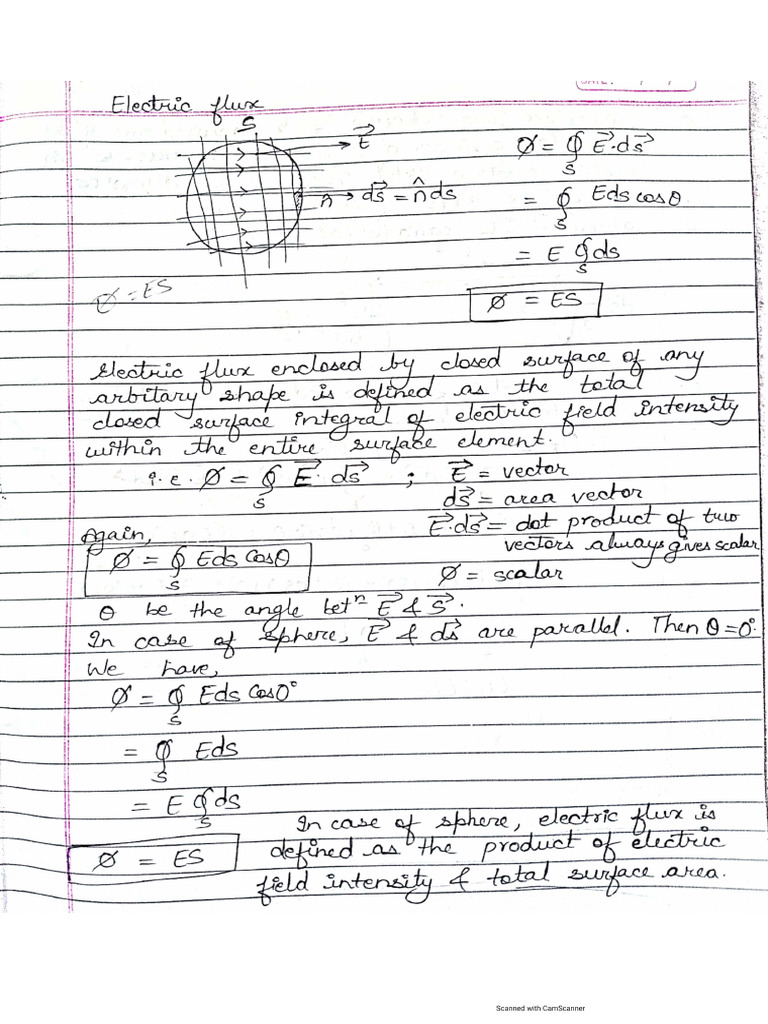 DATE: / /
Electric flux
S
E⃗
n̂ → ds⃗ = n̂ ds
Ø = ∮_S E⃗·ds⃗
= ∮_S Eds cosθ
= E ∮_S ds
Ø = ES
Ø = ES
Electric flux enclosed by closed surface of any
arbitary shape is defined as the total
closed surface integral of electric field intensity
within the entire surface element.
i.e. Ø = ∮_S E⃗·ds⃗ ; E⃗ = vector
ds⃗ = area vector
E⃗·ds⃗ = dot product of two
vectors always gives scalar
Again,
Ø = ∮_S Eds Cosθ
Ø = scalar
θ be the angle betⁿ E⃗ & S⃗.
In case of sphere, E⃗ & ds⃗ are parallel. Then θ=0°.
We have,
Ø = ∮_S Eds Cos0°
= ∮_S Eds
= E ∮_S ds
Ø = ES
In case of sphere, electric flux is
defined as the product of electric
field intensity & total surface area.
Scanned with CamScanner